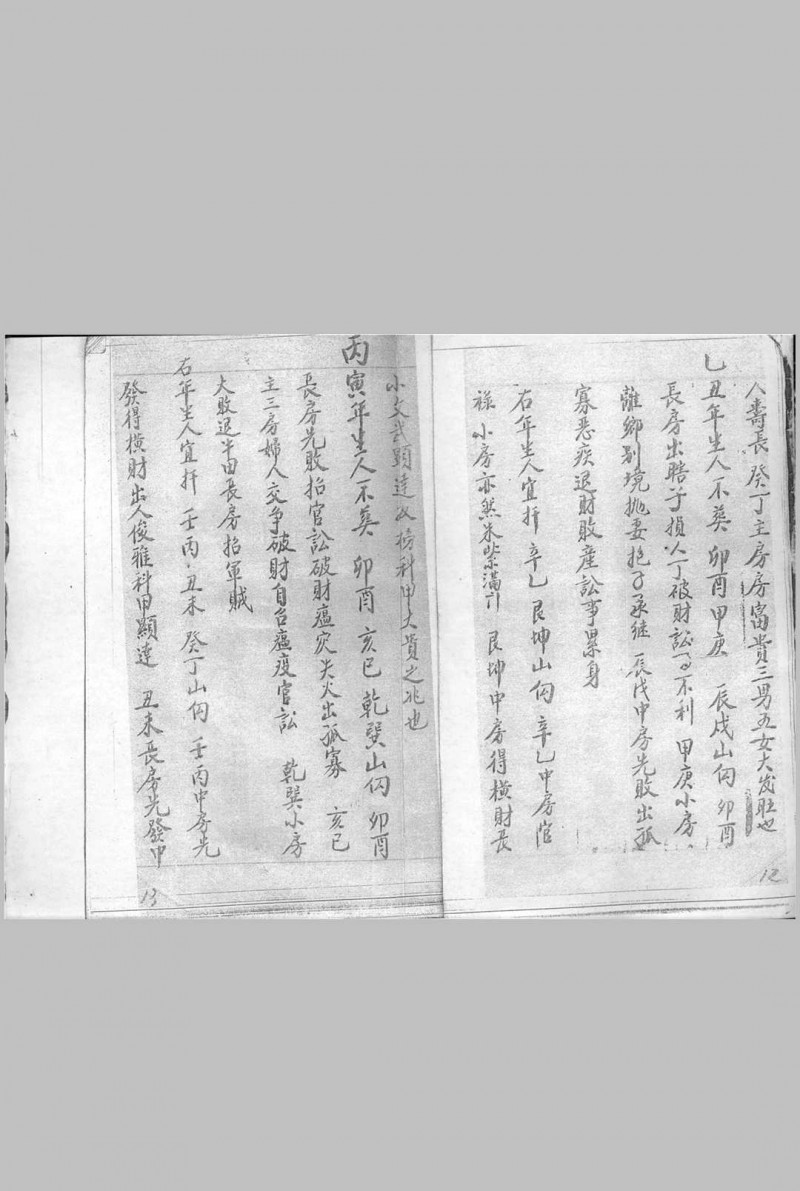 人壽長 癸丁主房房富貴三男五女大發旺也
乙丑年生人不葵 卯酉甲庚 辰戌山向 卯酉
長房出瞎子損人丁破財訟 不利 甲庚小房
離鄉別境拋妻抱子承继 辰戌中房先敗出孤
寡惡疾退財敗產訟事累身
右年生人宜扦 辛乙 艮坤山向 辛乙中房官
禄 小房亦然朱紫滿 艮坤中房得横財長
12
小文武顯達 榜科甲大貴之兆也
丙寅年生人不葵 卯酉 亥巳 乾巽山向 卯酉
長房先敗招官訟破財瘟灾失火出孤寡 亥巳
主三房婦人交争破財自合瘟疫官訟 乾巽小房
大敗退半田長房招軍賊
右年生人宜扦 壬丙 丑未 癸丁山向 壬丙中房先
發得横財出人俊雅科甲顯達 丑未長房先發中
13